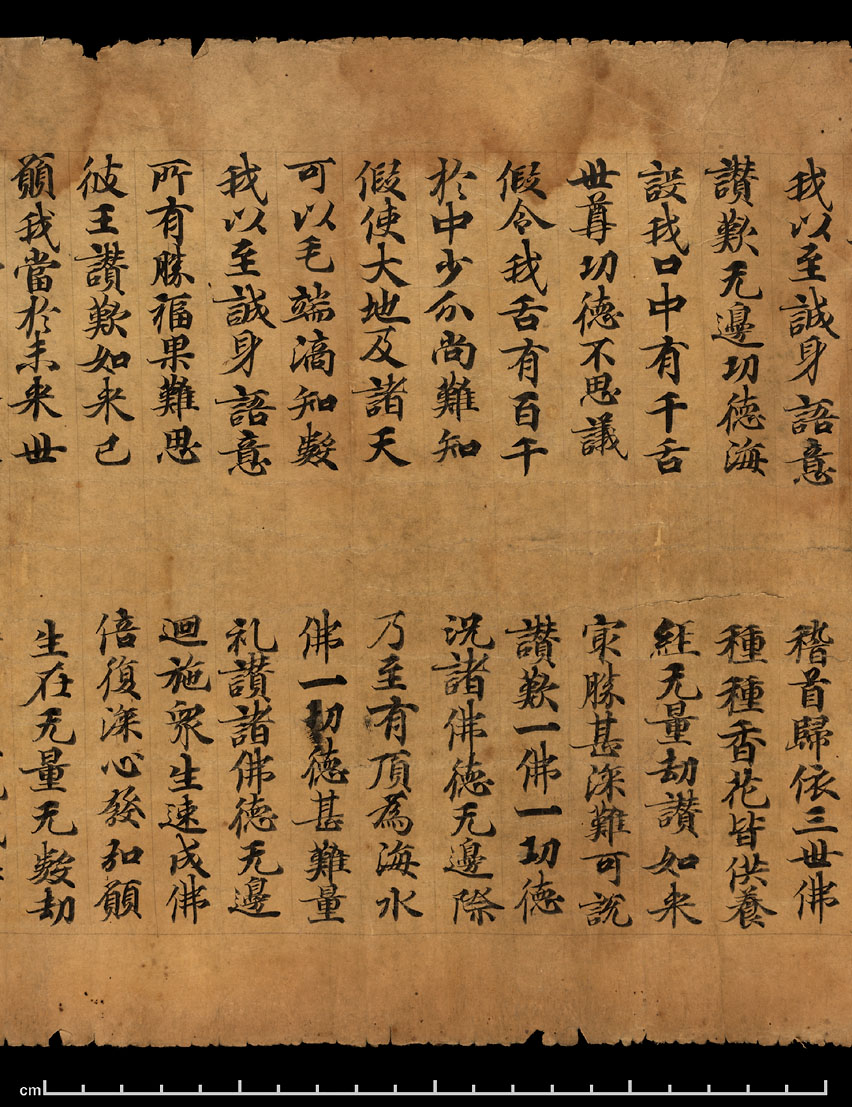 我以至誠身語意　稽首歸依三世佛
讃歎无邊功德海　種種香花皆供養
設我口中有千舌　經无量劫讃如来
世尊功德不思議　冣勝甚深難可說
假令我舌有百千　讃歎一佛一功德
於中少分尚難知　況諸佛德无邊際
假使大地及諸天　乃至有頂為海水
可以毛端滴知數　佛一切德甚難量
我以至誠身語意　礼讃諸佛德无邊
所有勝福果難思　迴施衆生速成佛
彼王讃歎如来已　倍復深心發弘願
願我當於未来世　生在无量无數劫